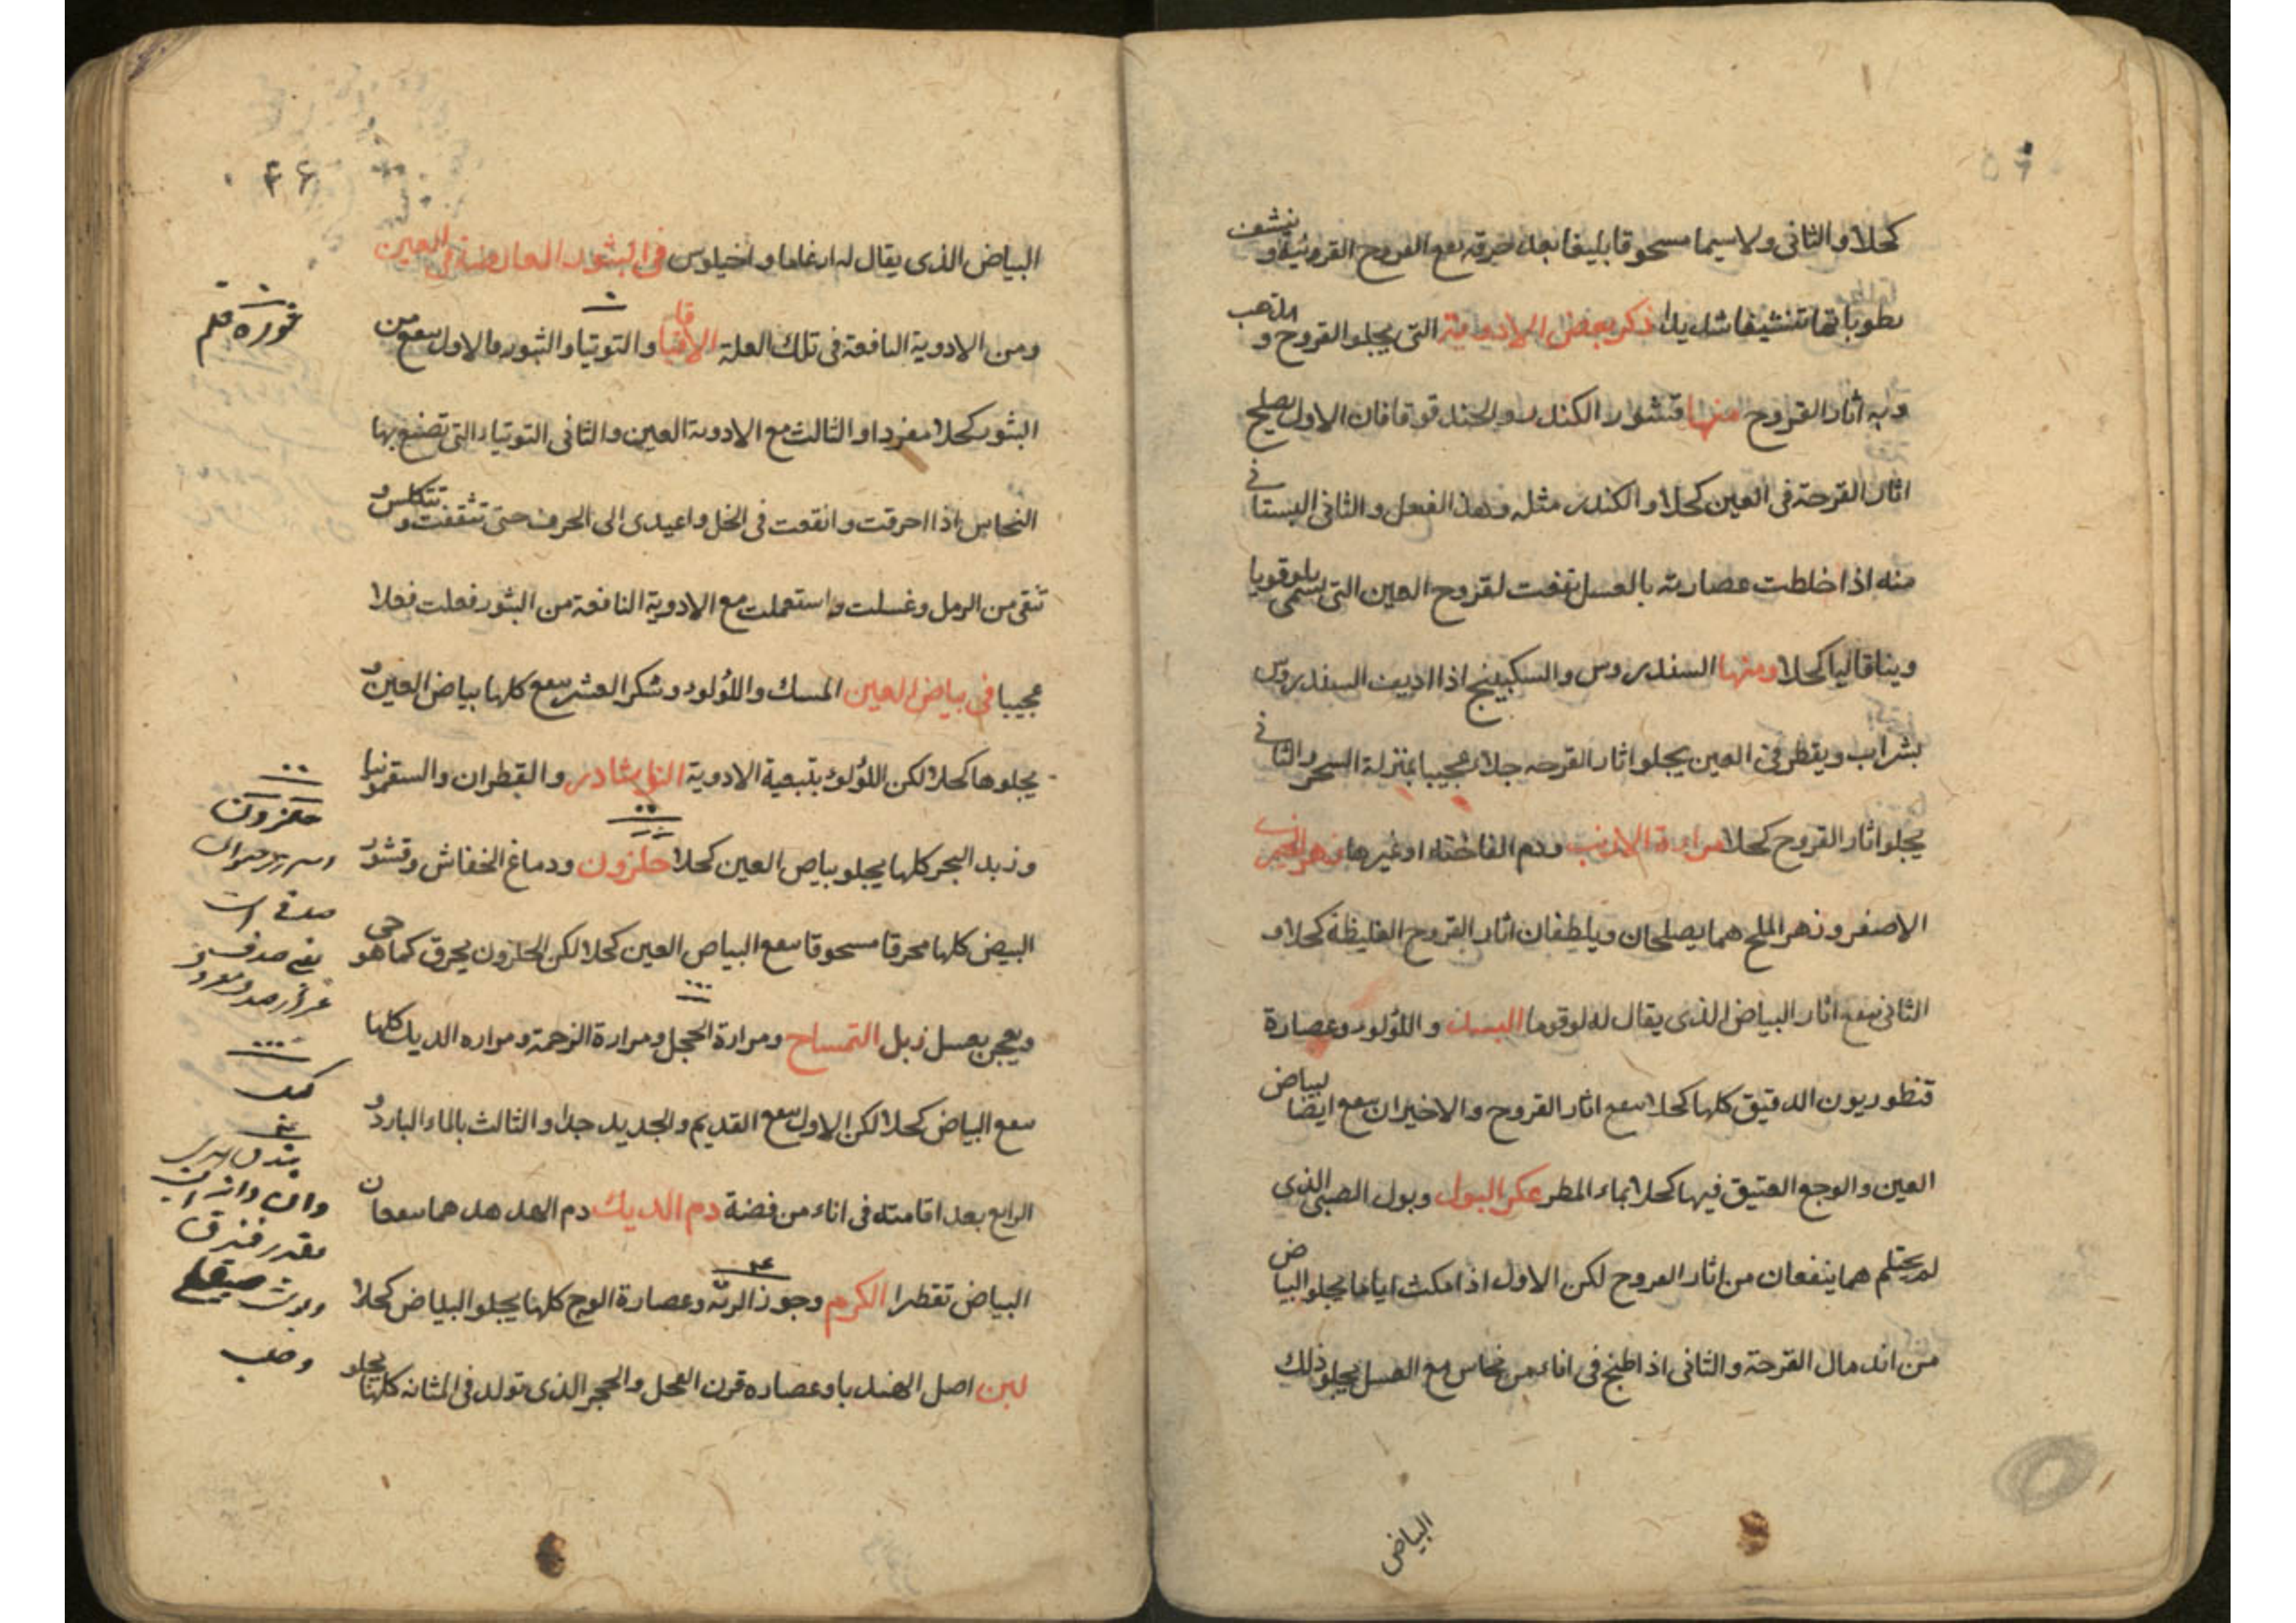 كحلا والثانى ولاسيما مسحوقا بليغا بعد حرقه نفع القروح القرونية و ينشف
رطوباتها تنشيفا شديدا ذكر بعض الادوية التى يجلو القروح و
وبه اثار القروح منها قشور الكندر والحندقوقا فان الاول يصلح
اثار القرحة فى العين كحلا والكندر مثله وهذا الفعل والثانى البستانى
منه اذا خلطت عصارته بالعسل نفعت لقروح العين التى يسمى
كحلا ومنها السندروس والسكبينج اذا اذيب السندروس
بشراب ويقطر فى العين يجلو اثار القرحه جلاء عجيبا بمنزلة السحر والثانى
يجلو اثار القروح كحلا مرارة الارنب ودم الفاختة او غيرها
الاصفر وزهر الملح هما يصلحان ويلطفان اثار القروح الغليظة كحلا و
الثانى ينفع اثار البياض الذى يقال له لوقوما واللؤلود وعصارة
قنطوريون الدقيق كلها كحلا ينفع اثار القروح والاخيران ينفع ايضا لبياض
العين والوجع العتيق فيها كحلا بماء المطر عكر البول وبول الصبى الذى
لم يحتلم هما ينفعان من اثار القروح لكن الاول اذا مكث اياما يجلو البياض
من اندمال القرحة والثانى اذا طبخ فى اناء من نحاس مع العسل يجلو ذلك
البياض
۴۶
البياض الذى يقال له ارغاما واخيلوس فى البثور العارضة فى العين
ومن الادوية النافعة فى تلك العلة الاقاقيا والتوتيا والثبور فالاول ينفع من
البثور كحلا مفردا والثالث مع الادوية العين والثانى التوتياء التى تصنع بها
النحاس اذا احرقت وانقعت فى الخل واعيدى الى الحرف حتى تثقفت و تتكلس و
تنقى من الرمل وغسلت واستعملت مع الادوية النافعة من البثور فعلت فعلا
عجيبا فى بياض العين المسك واللؤلود وشكر العشر ينفع كلها بياض العين و
يجلوها كحلا لكن اللؤلؤ بتبعية الادوية النوشادر والقطران والسقمونيا
وزبد البحر كلها يجلو بياض العين كحلا حلزون ودماغ الخفاش وقشور
البيض كلها محرقا مسحوقا ينفع البياض العين كحلا لكن الحلزون يحرق كما هو حى
ويعجن بعسل زبل التمساح ومرارة الحجل ومرارة الزخمة ومراره الديك كلها
ينفع البياض كحلا لكن الاول ينفع القديم والجديد جدا والثالث بالماء البارد و
الرابع بعد اقامته فى اناء من فضة دم الديك دم الهدهد هما ينفعان
البياض تقطرا الكرم وجوز الرتة وعصارة الوج كلها يجلو البياض كحلا
لبن اصل الهندبا وعصاره قرن العجل والحجر الذى تولد فى المثانه كلها يجلو
حلزون
صدف است
كبك
بندق
مقدر فندق